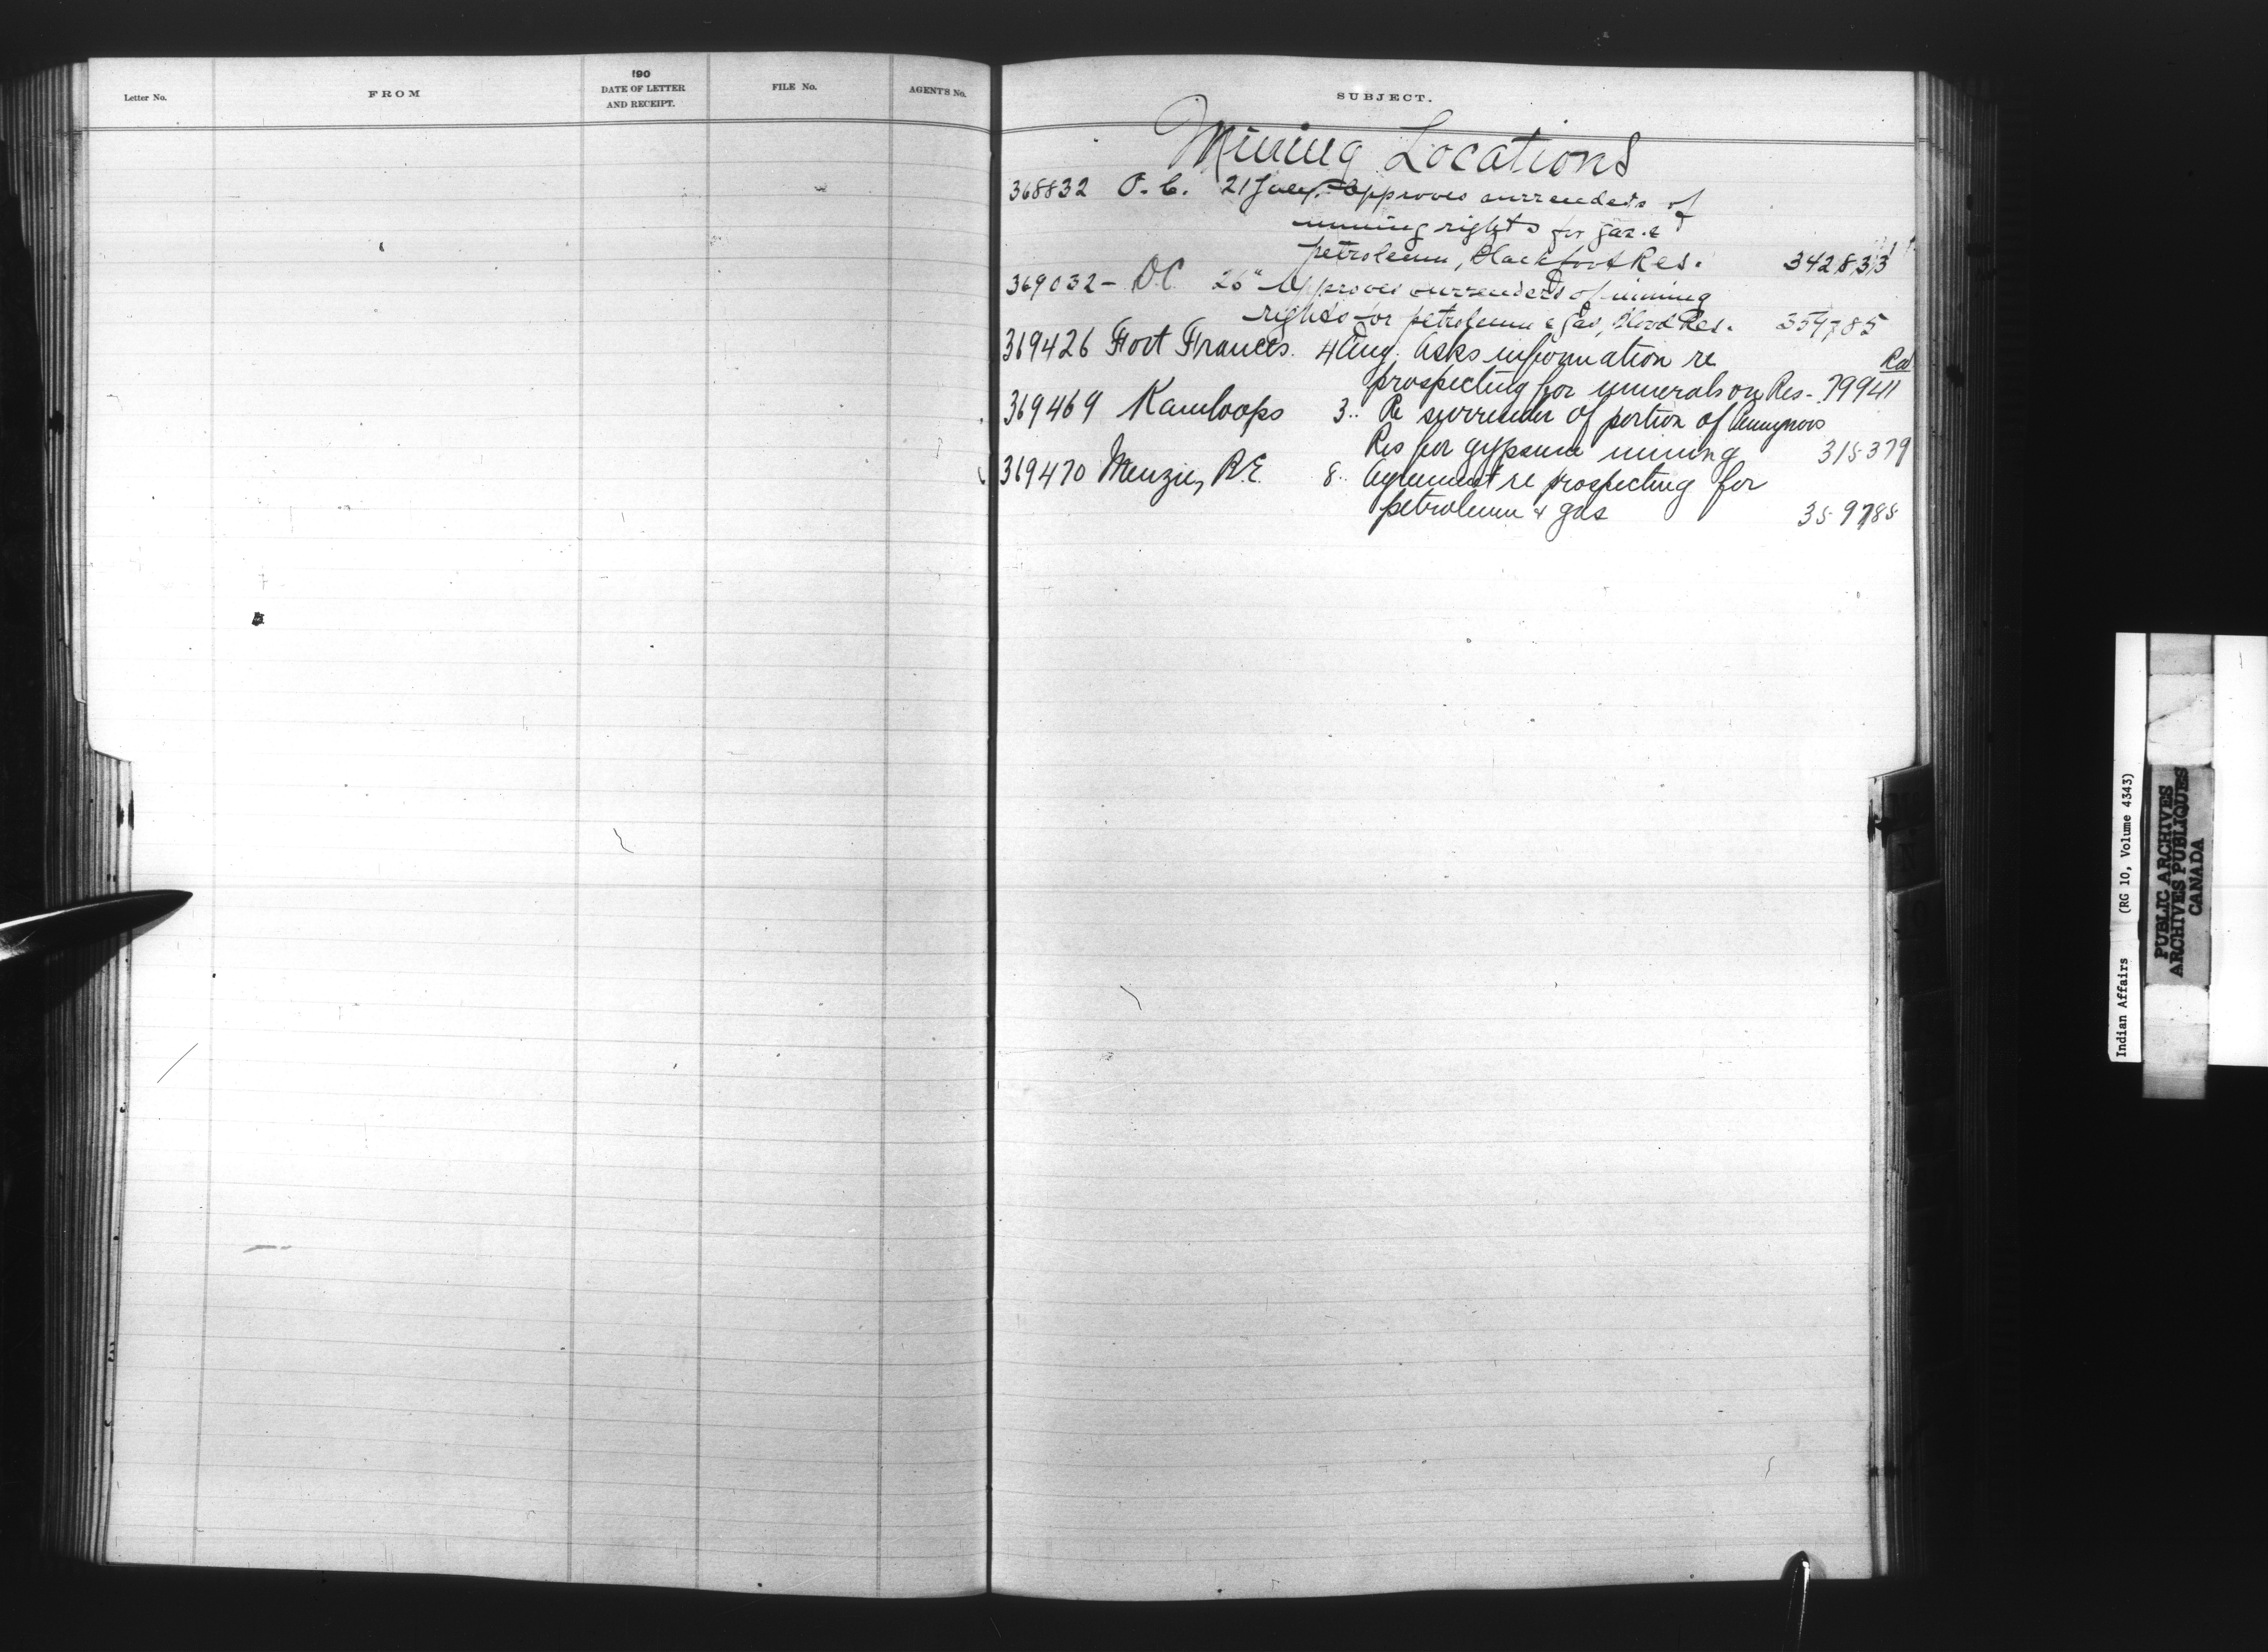 Letter No.
FROM
190
DATE OF LETTER
AND RECEIPT.
FILE No.
AGENTS No.
SUBJECT.
Mining Locations
368832 O.C. 21 July. Approves surrenders of
mining rights for gas &
petroleum, Blackfoot Res. 342833
369032 - O.C 26" Approves surrenders of mining
rights for petroleum & gas, Blood Res. 359785
369426 Fort Frances. 4 Aug. Asks information re
Red
prospecting for minerals on Res - 79941
369469 Kamloops 3.. Re surrender of portion of
Res for gypsum mining 315379
369470 Menzie, R.E. 8.. Agreement re prospecting for
petroleum & gas 359785
Indian Affairs (RG 10, Volume 4343)
PUBLIC ARCHIVES
ARCHIVES PUBLIQUES
CANADA